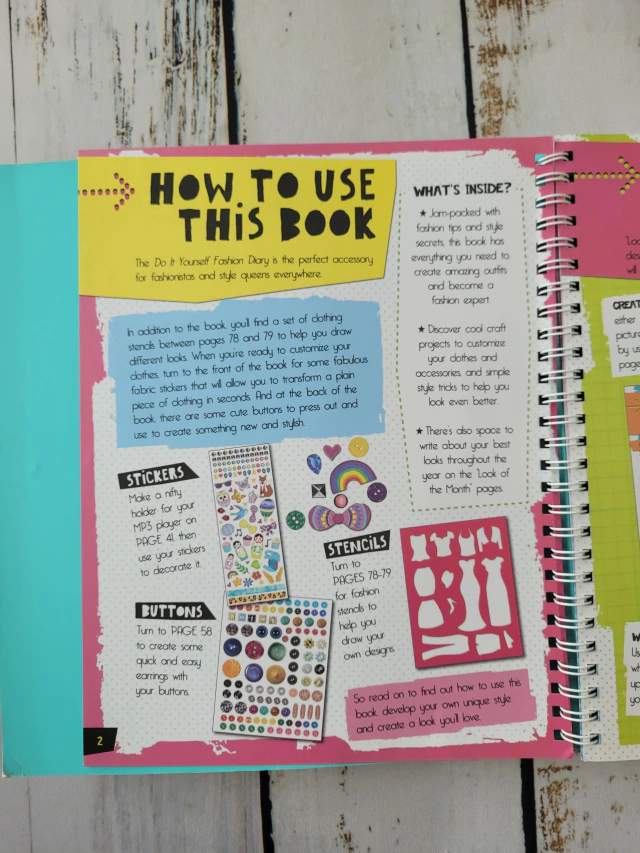 HOW TO USE
THIS BOOK
The Do It Yourself Fashion Diary is the perfect accessory
for fashionistas and style queens everywhere.
In addition to the book, you'll find a set of clothing
stencils between pages 78 and 79 to help you draw
different looks. When you're ready to customize your
clothes, turn to the front of the book for some fabulous
fabric stickers that will allow you to transform a plain
piece of clothing in seconds. And at the back of the
book, there are some cute buttons to press out and
use to create something new and stylish.
WHAT'S INSIDE?
★ Jam-packed with
fashion tips and style
secrets, this book has
everything you need to
create amazing outfits
and become a
fashion expert.
★ Discover cool craft
projects to customize
your clothes and
accessories, and simple
style tricks to help you
look even better.
★ There's also space to
write about your best
looks throughout the
year on the "Look of
the Month" pages.
STICKERS
Make a nifty
holder for your
MP3 player on
PAGE 41, then
use your stickers
to decorate it.
BUTTONS
Turn to PAGE 58
to create some
quick and easy
earrings with
your buttons.
STENCILS
Turn to
PAGES 78-79
for fashion
stencils to
help you
draw your
own designs.
So read on to find out how to use this
book, develop your own unique style
and create a look you'll love.
2
will
either
picture
by us
page